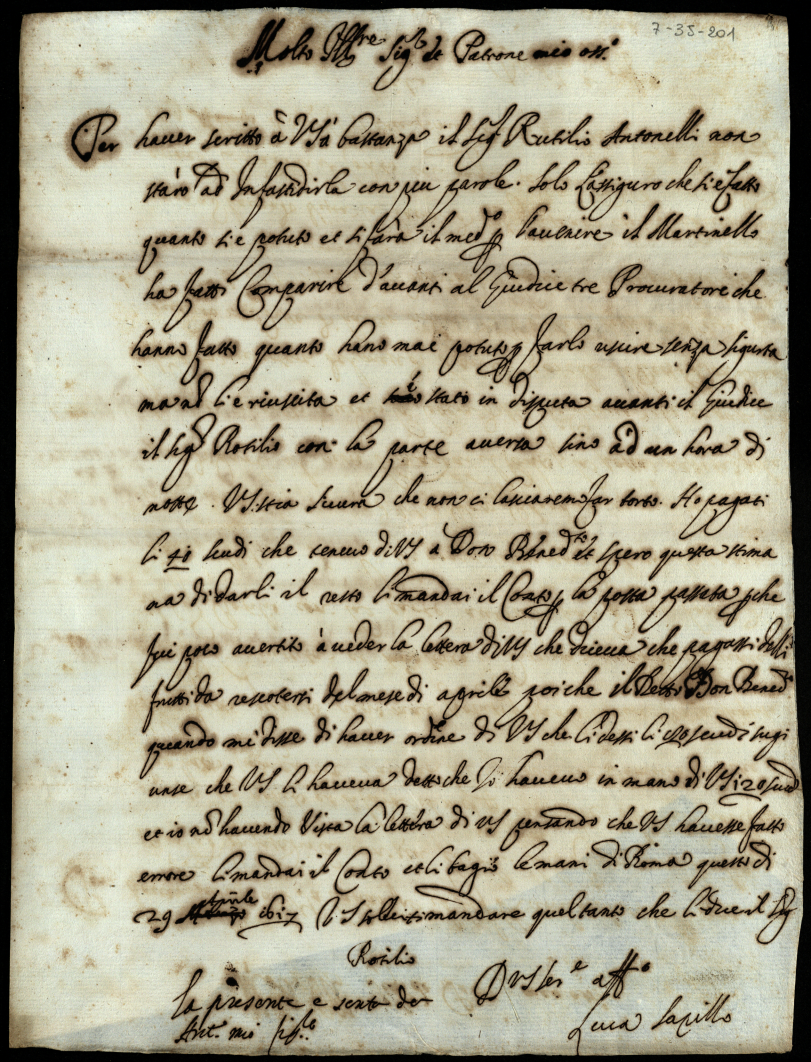 7-35-201
Molto Ill.re Sig.r et Patrone mio oss.o
Per hauer scritto à VS à bastanza il Sig.r Rutilio Antonelli non
starò ad Infastidirla con piu parole. solo l'assiguro che si è fatto
quanto si e potuto et si farà il med.o p l'auenire il Martinello
ha fatti Comparire d'auanti al Giudice tre Procuratori che
hanno fatto quanto hano mai potuto p farlo uscire senza sigurta
ma nõ li è riuscita et è stato in disputa auanti il Giudice
il Sig.r Rotilio con la parte auersa sino ad un hora di
notte. VS stia sicura che non ci lasciaremo far torto. Ho pagati
li 40 scudi che teneuo di VS à Don Bened.to et spero questa stima
na di darli il resto li mandai il Conto p la posta passata p che
fui poco auertito à ueder la lettera di VS che diceua che pagassi delli
frutti da rescotersi del mese di aprile poi che il Don Bened.o
quando mi disse di hauer ordine di VS che li dessi li 120 scudi sugi
unse che VS li haueua detto che Io haueuo in mano di VS 120 scudi
et io nõ hauendo Vista la lettera di VS pensando che VS hauesse fatto
errore li mandai il Conto et li bagio le mani di Roma questo di
29 Aprile 1617 VS mandare quel tanto che li dice il Sig.r
Rotilio
la presente e scritta de
mio D VS Ser.e aff.o
Luca